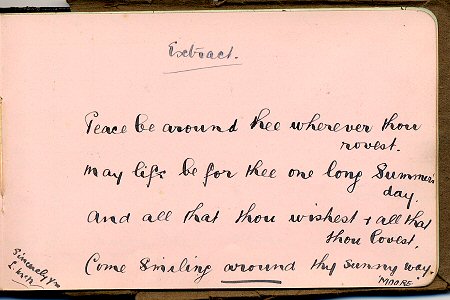 Extract.
Peace be around thee wherever thou
rovest.
May life be for thee one long Summer's
day.
And all that thou wishest & all that
thou lovest,
Come Smiling around thy sunny way.
"MOORE"
Sincerely yrs